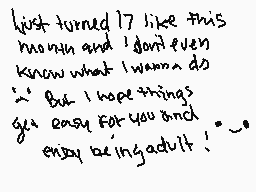 I just turned 17 like this
month and I don't even
know what I wanna do
:-: But I hope things
get easy for you and
enjoy being adult! :-)